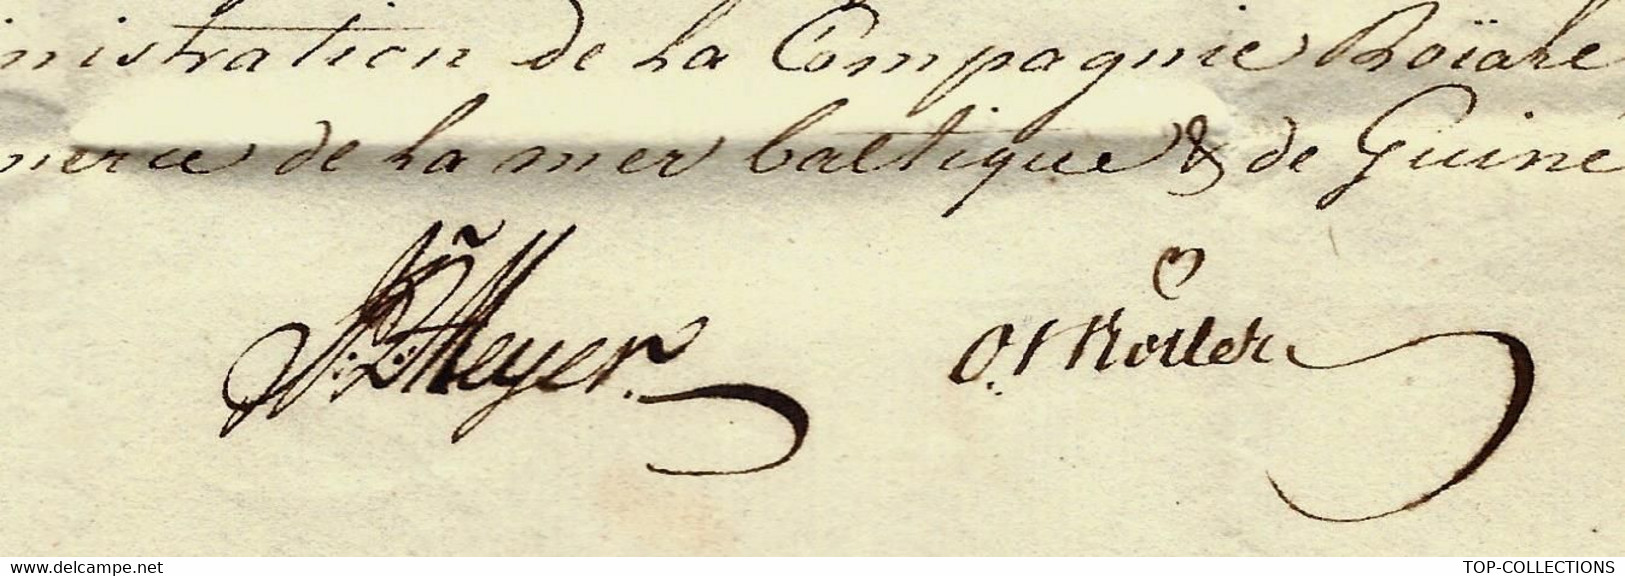 nistration de la Compagnie Roïale
merce de la mer baltique & de Guiné
Meyer
www.delcampe.net
TOP-COLLECTIONS